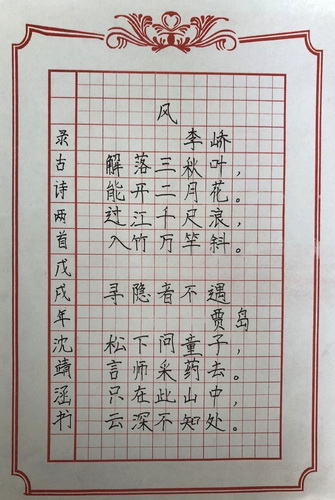 风
李峤
解落三秋叶，
能开二月花。
过江千尺浪，
入竹万竿斜。
寻隐者不遇
贾岛
松下问童子，
言师采药去。
只在此山中，
云深不知处。
录古诗两首戊戌年沈靖涵书